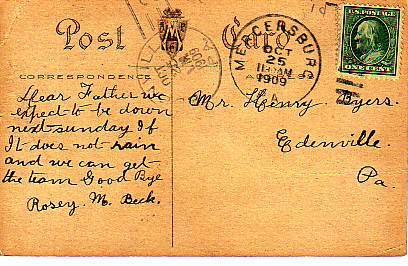 Post Card
CORRESPONDENCE
Dear Father we
expect to be down
next sunday If
It does not rain
and we can get
the team Good Bye
Rosey. M. Beck.
MERCERSBURG
OCT
25
1909
PA.
U.S. POSTAGE
ONE CENT
Mr. Henry Byers.
Edenville.
Pa.